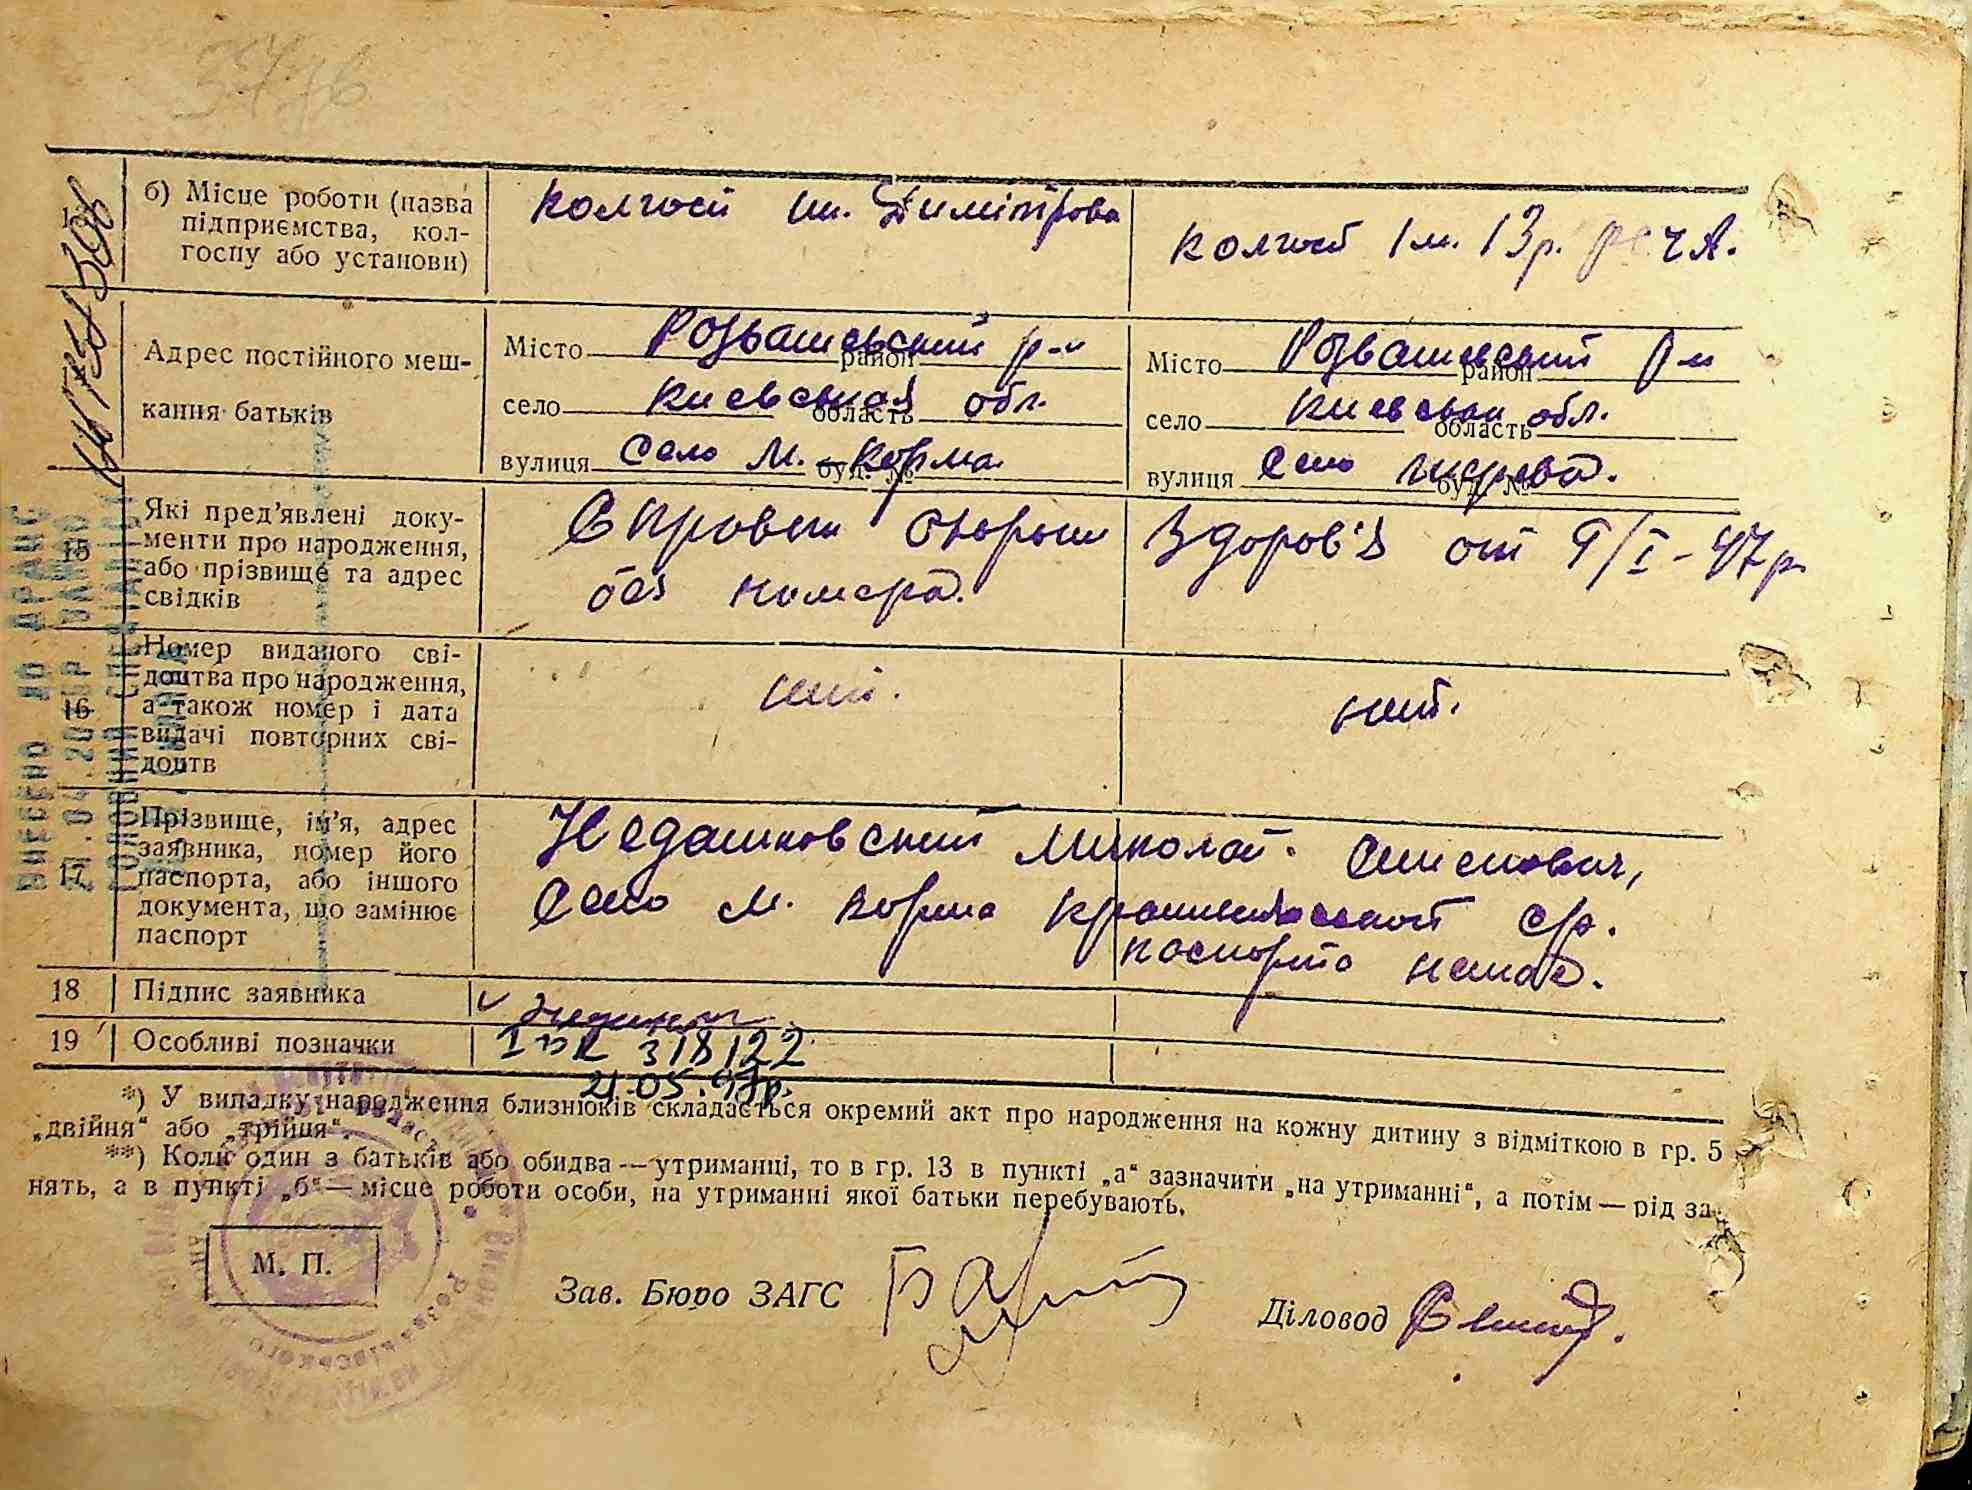 3776
б) Місце роботи (назва
підприємства, кол-
госпу або установи)
колгосп ім. Димітрова
колгосп ім. 13 р. РСЧА.
Адрес постійного меш-
кання батьків
Місто Розважевський р-н район
село Киевская обл. область
вулиця Село М.-Корма. буд. №
Місто Розважевський р-н район
село Киевская обл. область
вулиця Село буд. №
15
Які пред'явлені доку-
менти про народження,
або прізвище та адрес
свідків
Справки охорони Здоров'я от 9/I-47р
без номера.
16
Номер виданого сві-
доцтва про народження,
а також номер і дата
видачі повторних сві-
доцтв
17
Прізвище, ім'я, адрес
заявника, номер його
паспорта, або іншого
документа, що замінює
паспорт
Недашковський Миколай
Село М. Корма с/р.
паспорта немає.
18 Підпис заявника
19 Особливі позначки
318122
21.05.97р.
*) У випадку народження близнюків складається окремий акт про народження на кожну дитину з відміткою в гр. 5
„двійня“ або „трійця“.
**) Коли один з батьків або обидва — утриманці, то в гр. 13 в пункті „а“ зазначити „на утриманні“, а потім — рід за-
нять, а в пункті „б“ — місце роботи особи, на утриманні якої батьки перебувають.
М. П.
Зав. Бюро ЗАГС
Діловод
ВНЕСЕНО ДО ДРАЦС